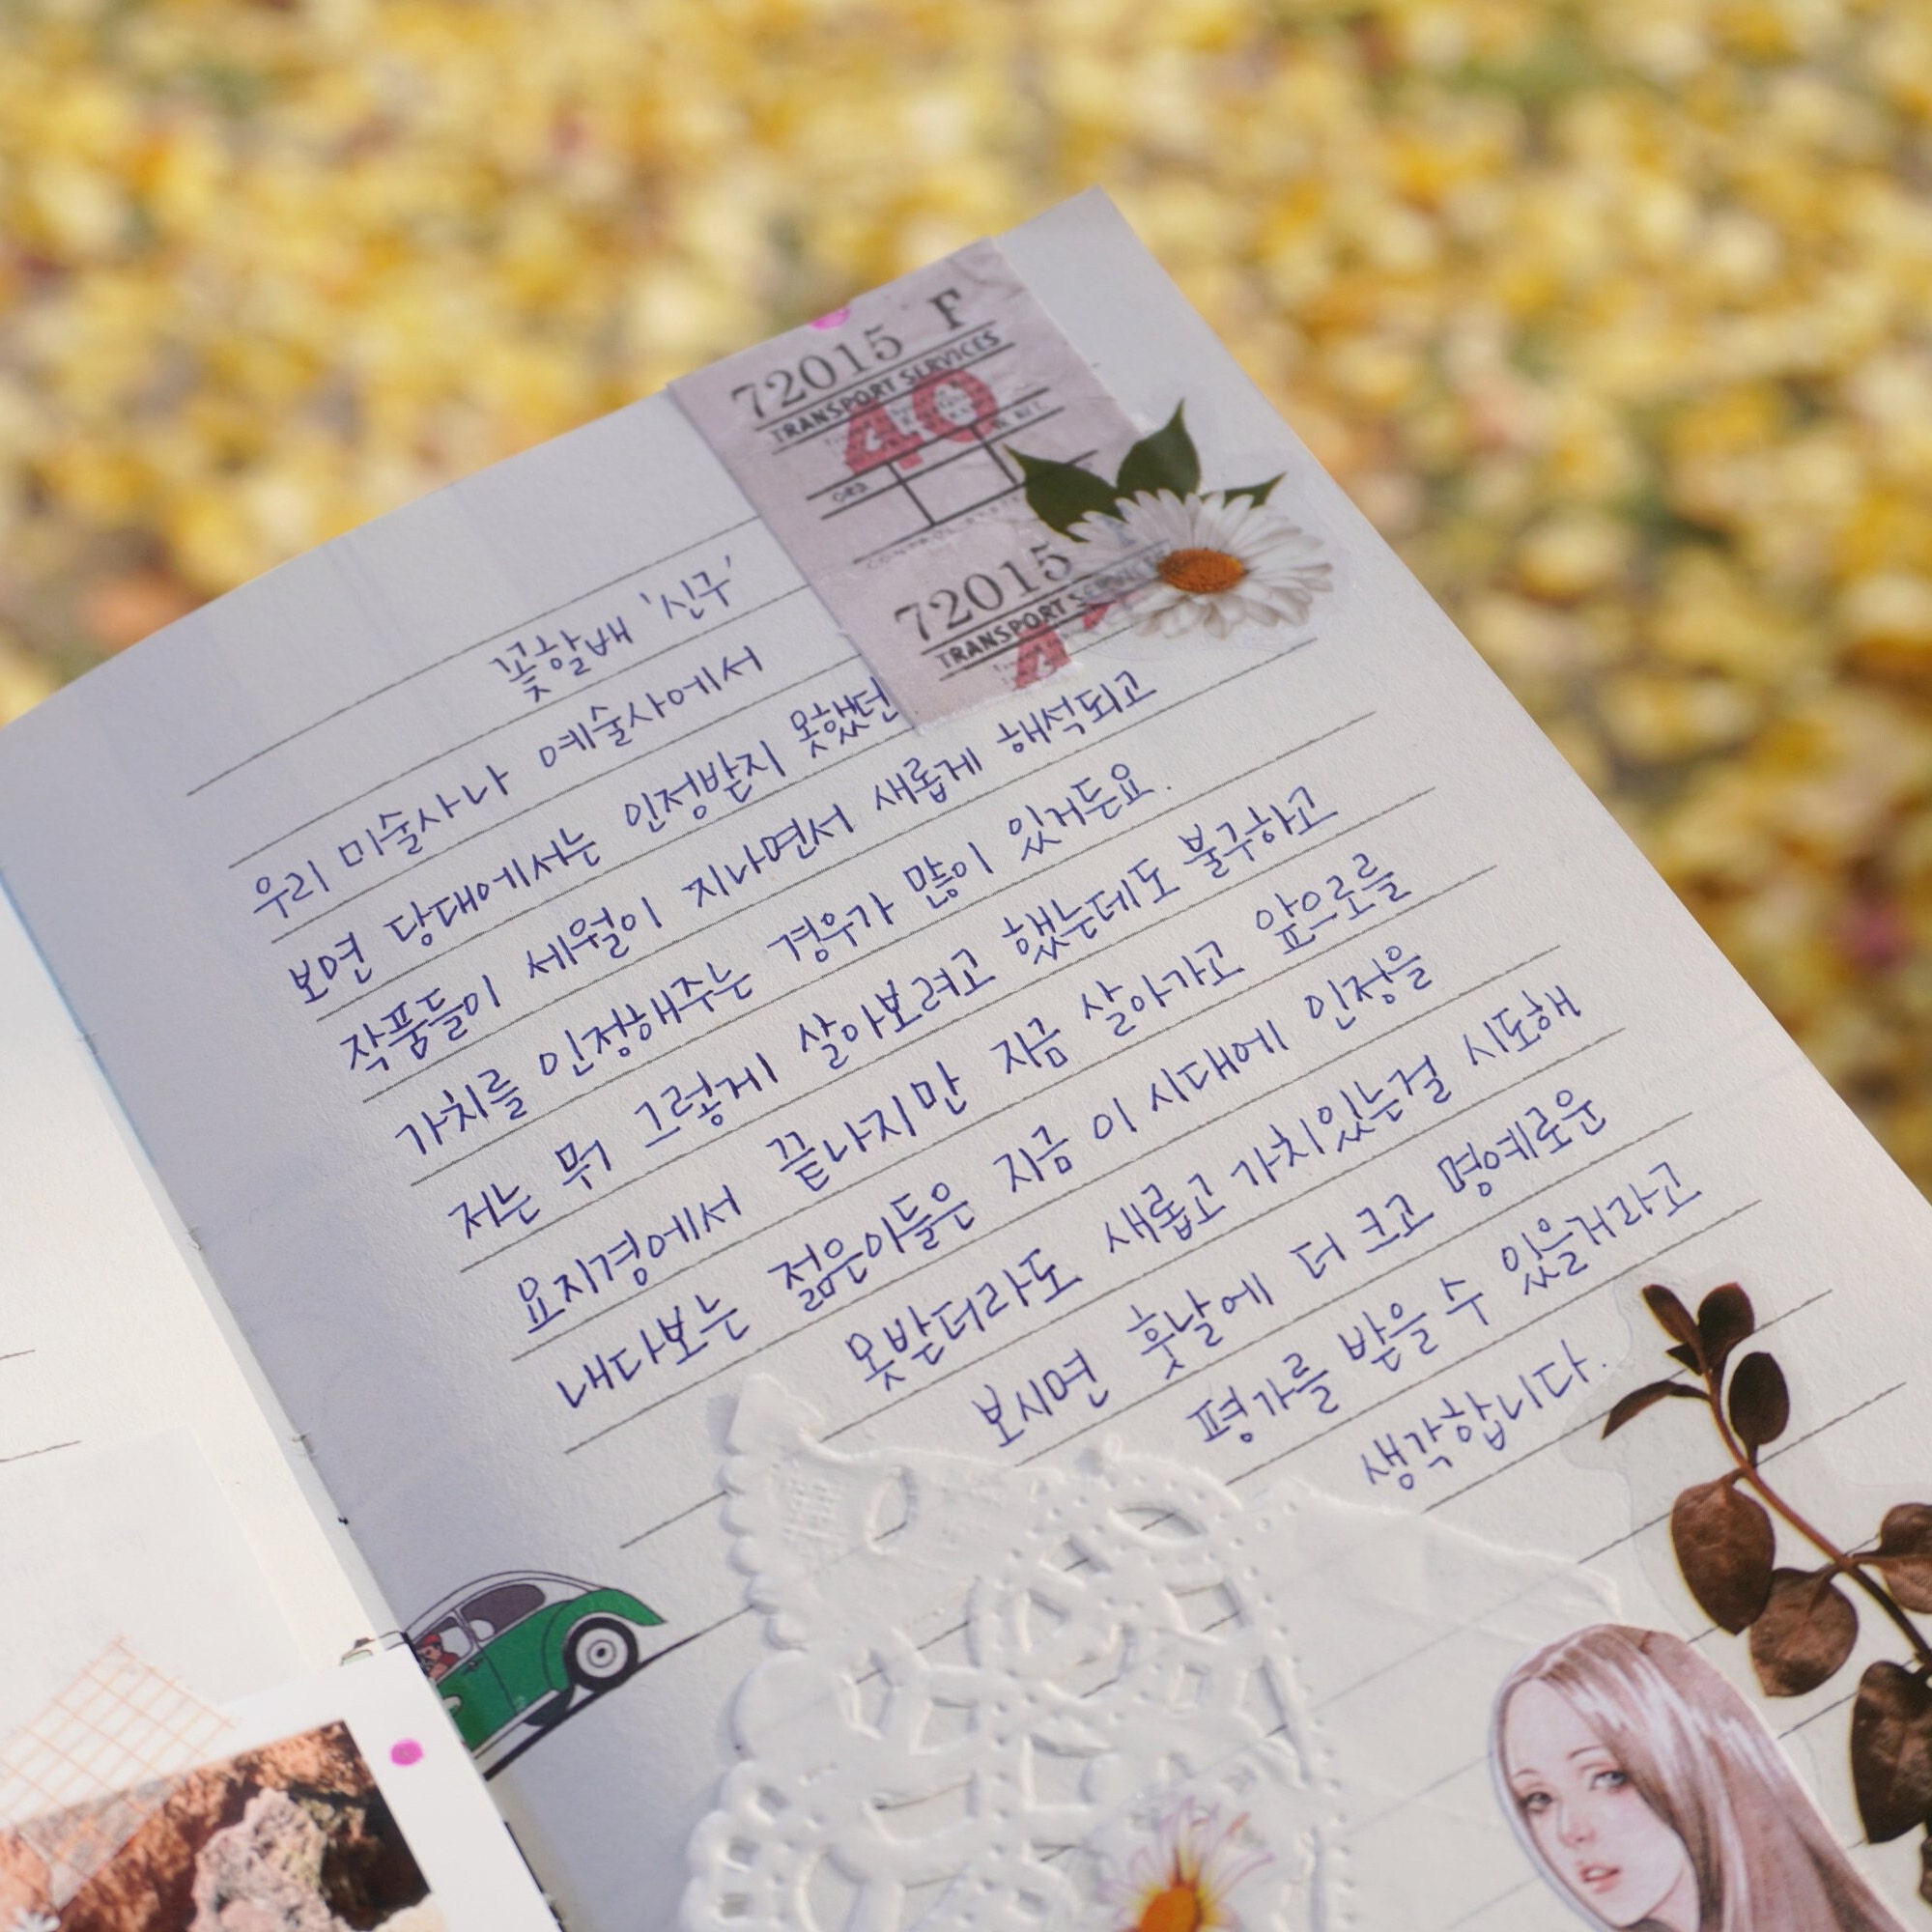 72015 F
TRANSPORT SERVICES
40
ORD.
72015
TRANSPORT SERVICES
꽃할배 '신구'
우리 미술사나 예술사에서
보면 당대에서는 인정받지 못했던
작품들이 세월이 지나면서 새롭게 해석되고
가치를 인정해주는 경우가 많이 있거든요.
저는 뭐 그렇게 살아보려고 했는데도 불구하고
요지경에서 끝나지만 지금 살아가고 앞으로를
내다보는 젊은아들은 지금 이 시대에 인정을
못받더라도 새롭고 가치있는걸 시도해
보시면 훗날에 더 크고 명예로운
평가를 받을 수 있을거라고
생각합니다.